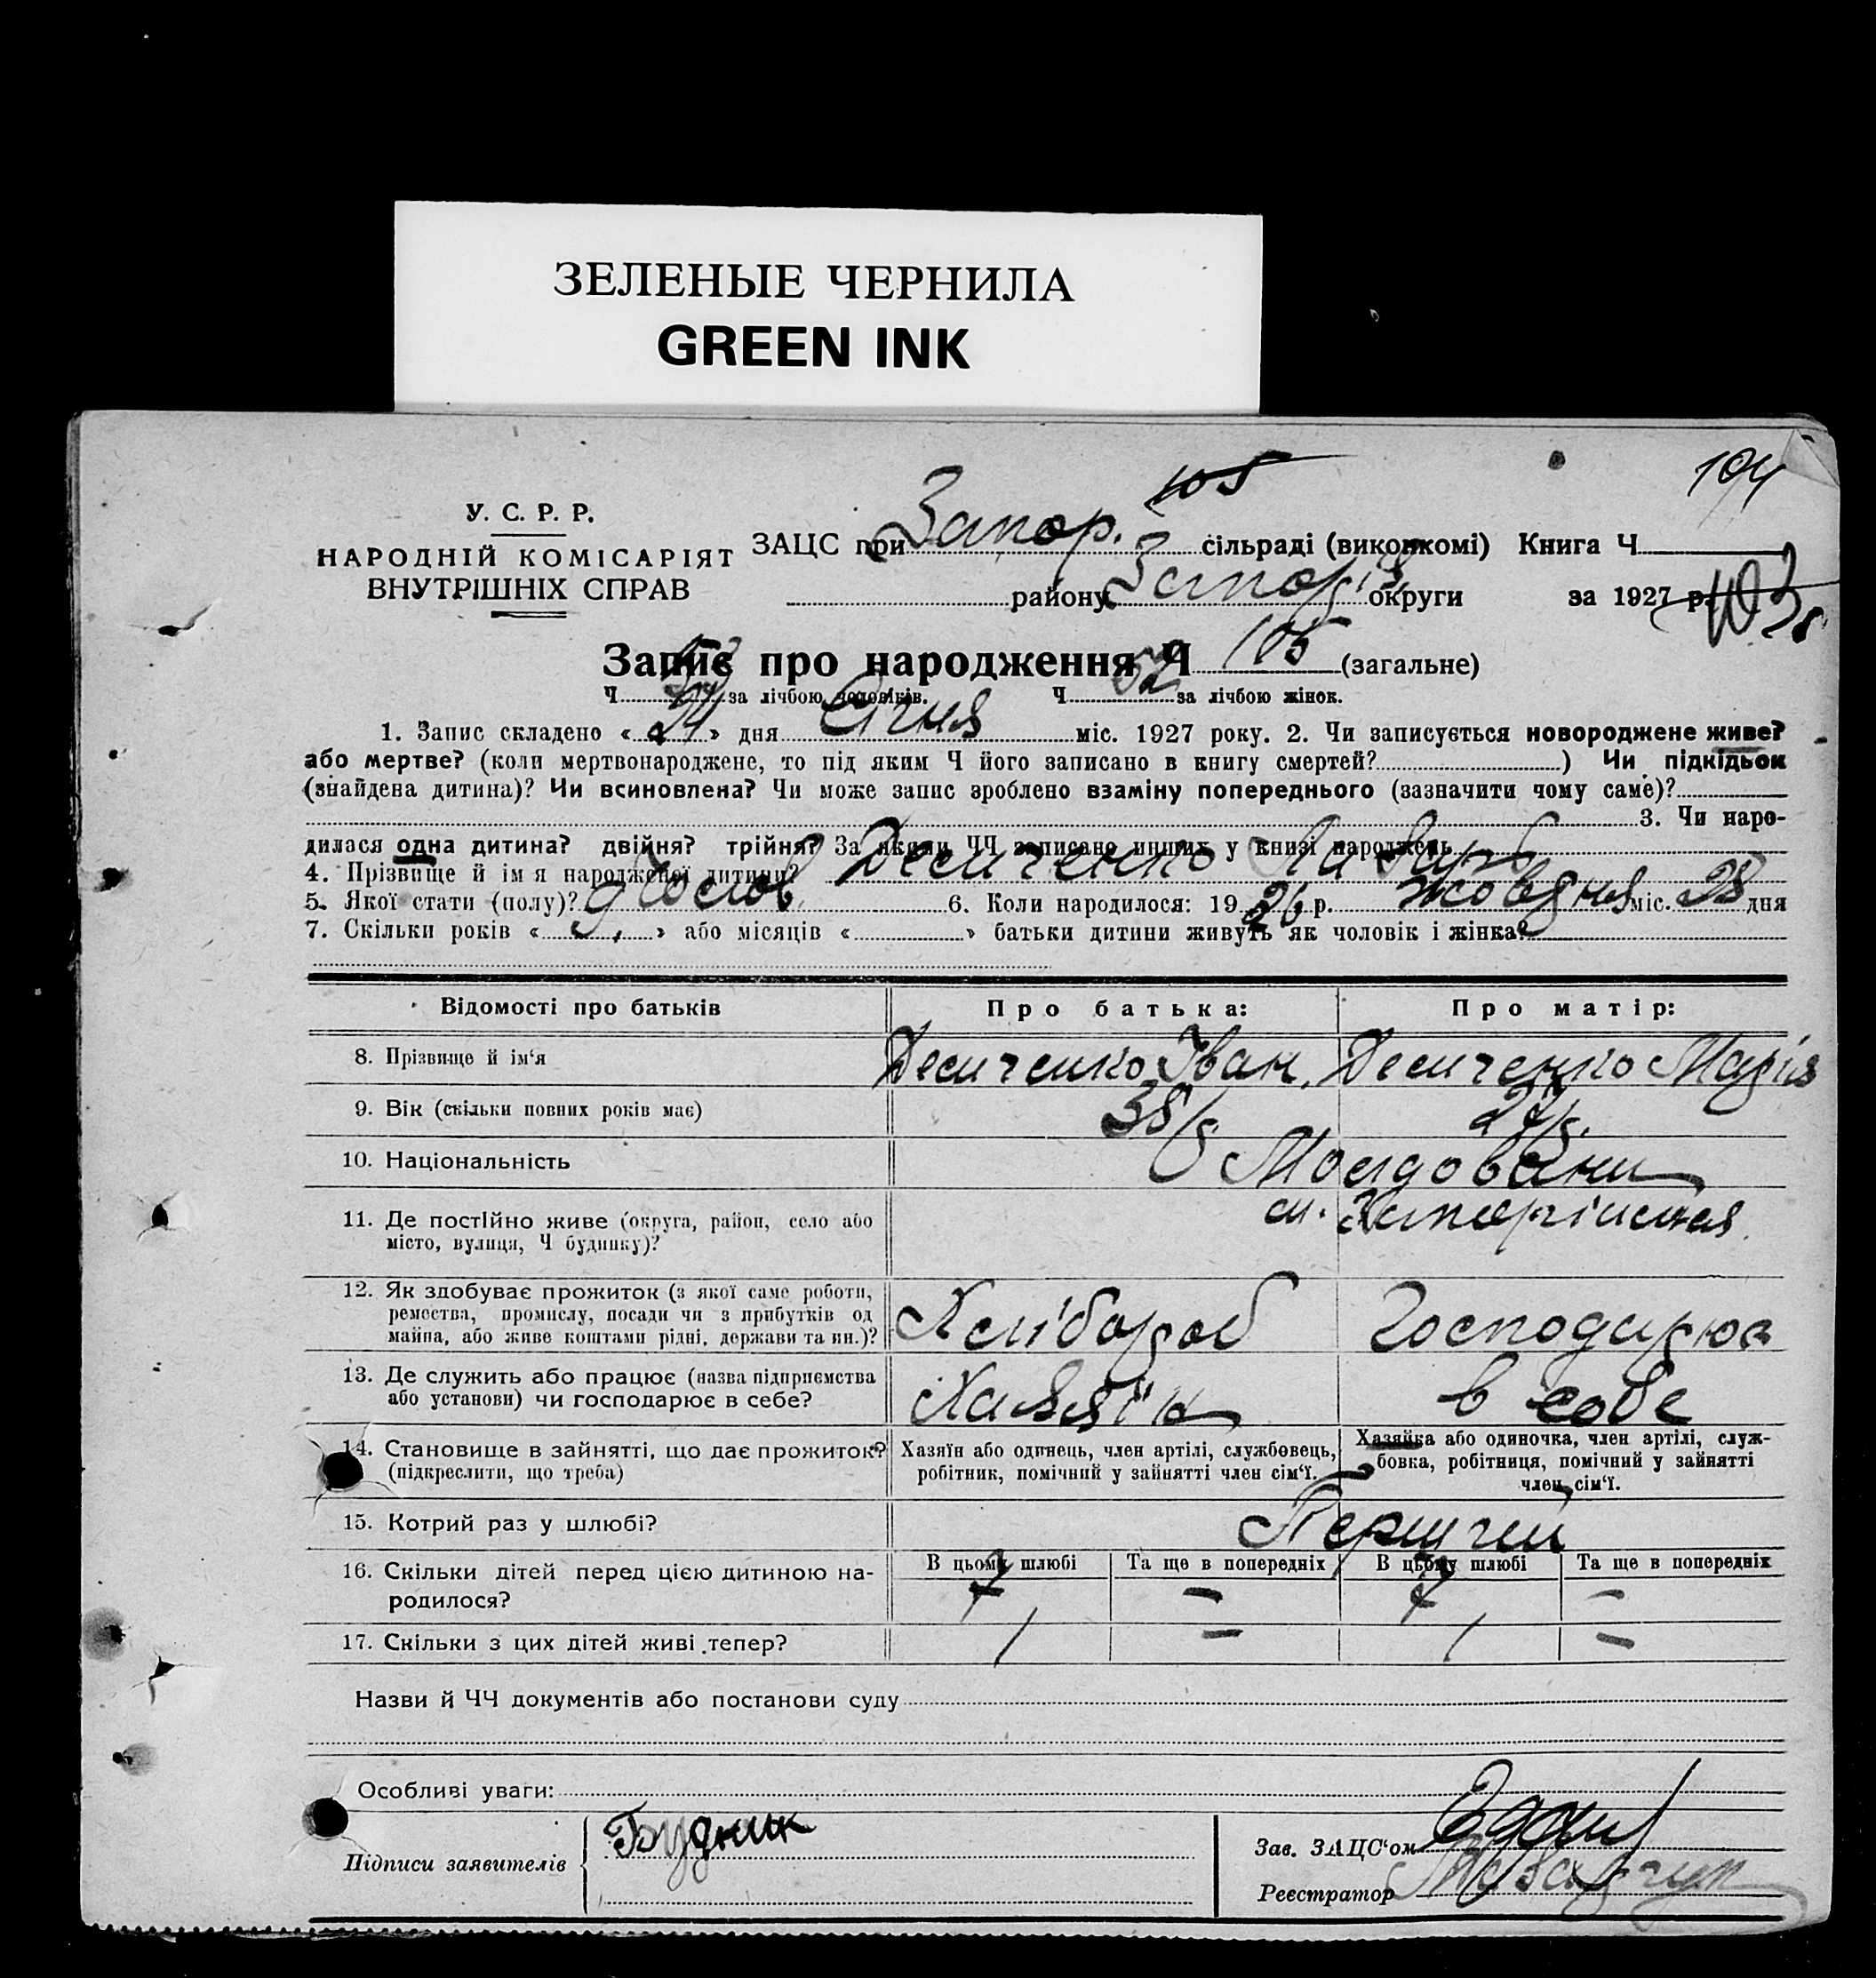 ЗЕЛЕНЫЕ ЧЕРНИЛА
GREEN INK
105 194
У. С. Р. Р.
НАРОДНІЙ КОМІСАРІЯТ
ВНУТРІШНІХ СПРАВ
ЗАЦС при Запор. сільраді (виконкомі) Книга Ч
району Запоріз округи за 1927 р. 103
Запис про народження Ч 105 (загальне)
Ч за лічбою чоловіків. Ч 52 за лічбою жінок.
1. Запис складено « 24 » дня Січня міс. 1927 року. 2. Чи записується новороджене живе?
або мертве? (коли мертвонароджене, то під яким Ч його записано в книгу смертей? ) Чи підкідьок
(знайдена дитина)? Чи всиновлена? Чи може запис зроблено взаміну попереднього (зазначити чому саме)?
3. Чи наро-
дилася одна дитина? двійня? трійня? За якими ЧЧ записано инших у книзі народжень
4. Прізвище й ім'я народженої дитини? Десиченко
5. Якої стати (полу)? Чолов 6. Коли народилося: 19 26 р. жовтня міс. 28 дня
7. Скільки років « 9 » або місяців « » батьки дитини живуть як чоловік і жінка?
Відомості про батьків Про батька: Про матір:
8. Прізвище й ім'я Десиченко Іван, Десиченко Марія
9. Вік (скільки повних років має) 38 27
10. Національність Молдовани
11. Де постійно живе (округа, район, село або
місто, вулиця, Ч будинку)?
12. Як здобуває прожиток (з якої саме роботи,
ремества, промислу, посади чи з прибутків од
майна, або живе коштами рідні, держави та ин.)? Хлібороб Господарює
13. Де служить або працює (назва підприємства
або установи) чи господарює в себе? Хазяїн в собе
14. Становище в зайнятті, що дає прожиток?
(підкреслити, що треба)
Хазяїн або одинець, член артілі, службовець,
робітник, помічний у зайнятті член сім'ї.
Хазяйка або одиночка, член артілі, служ-
бовка, робітниця, помічний у зайнятті
член сім'ї.
15. Котрий раз у шлюбі? Перший
16. Скільки дітей перед цією дитиною на-
родилося?
В цьому шлюбі Та ще в попередніх В цьому шлюбі Та ще в попередніх
7 — 7 —
17. Скільки з цих дітей живі тепер? / — / —
Назви й ЧЧ документів або постанови суду
Особливі уваги:
Підписи заявителів Будник
Зав. ЗАЦС'ом
Реєстратор